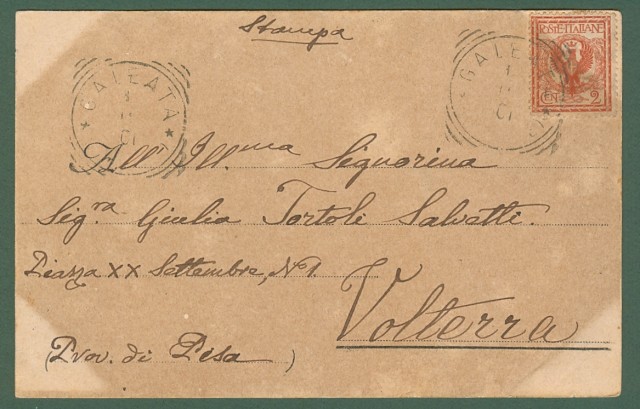 Stampa
POSTE·ITALIANE
CENT. 2
GALEATA
GALEATA
All' Ill.ma Signorina
Sig.ra Giulia Tortoli Salvetti.
Piazza XX Settembre, N° 1.
Volterra
(Prov. di Pisa)